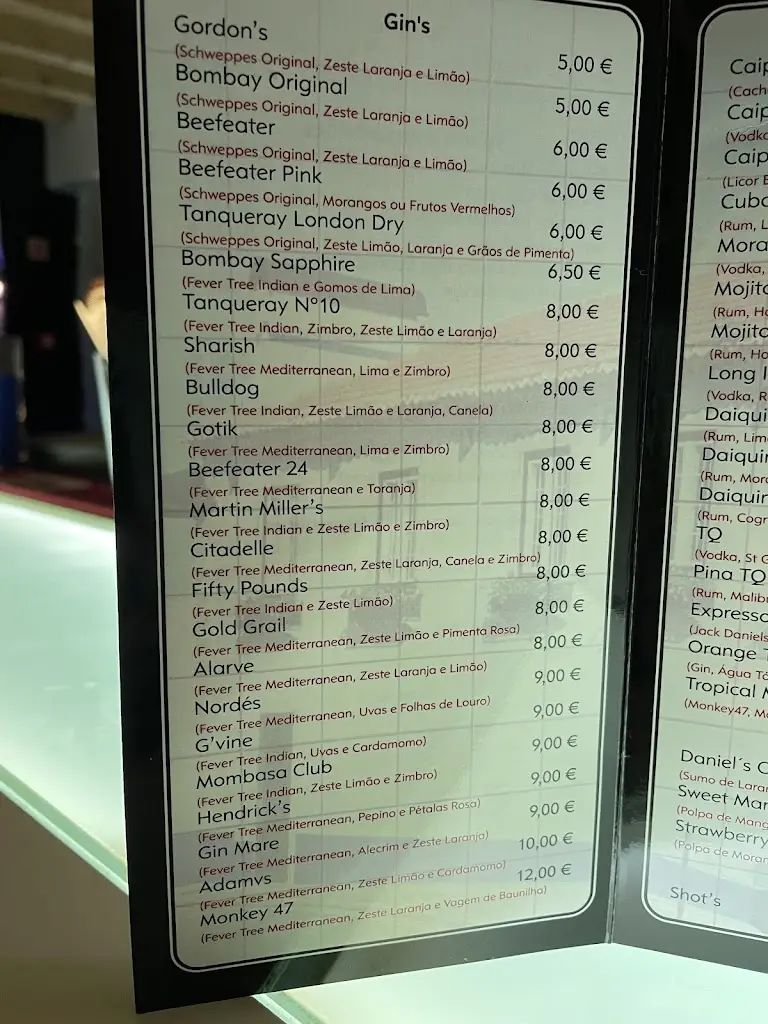 Gin's
Gordon's 5,00 €
(Schweppes Original, Zeste Laranja e Limão)
Bombay Original 5,00 €
(Schweppes Original, Zeste Laranja e Limão)
Beefeater 6,00 €
(Schweppes Original, Zeste Laranja e Limão)
Beefeater Pink 6,00 €
(Schweppes Original, Morangos ou Frutos Vermelhos)
Tanqueray London Dry 6,00 €
(Schweppes Original, Zeste Limão, Laranja e Grãos de Pimenta)
Bombay Sapphire 6,50 €
(Fever Tree Indian e Gomos de Lima)
Tanqueray Nº10 8,00 €
(Fever Tree Indian, Zimbro, Zeste Limão e Laranja)
Sharish 8,00 €
(Fever Tree Mediterranean, Lima e Zimbro)
Bulldog 8,00 €
(Fever Tree Indian, Zeste Limão e Laranja, Canela)
Gotik 8,00 €
(Fever Tree Mediterranean, Lima e Zimbro)
Beefeater 24 8,00 €
(Fever Tree Mediterranean e Toranja)
Martin Miller's 8,00 €
(Fever Tree Indian e Zeste Limão e Zimbro)
Citadelle 8,00 €
(Fever Tree Mediterranean, Zeste Laranja, Canela e Zimbro)
Fifty Pounds 8,00 €
(Fever Tree Indian e Zeste Limão)
Gold Grail 8,00 €
(Fever Tree Mediterranean, Zeste Limão e Pimenta Rosa)
Alarve 8,00 €
(Fever Tree Mediterranean, Zeste Laranja e Limão)
Nordés 9,00 €
(Fever Tree Mediterranean, Uvas e Folhas de Louro)
G'vine 9,00 €
(Fever Tree Indian, Uvas e Cardamomo)
Mombasa Club 9,00 €
(Fever Tree Indian, Zeste Limão e Zimbro)
Hendrick's 9,00 €
(Fever Tree Mediterranean, Pepino e Pétalas Rosa)
Gin Mare 9,00 €
(Fever Tree Mediterranean, Alecrim e Zeste Laranja)
Adamvs 10,00 €
(Fever Tree Mediterranean, Zeste Limão e Cardamomo)
Monkey 47 12,00 €
(Fever Tree Mediterranean, Zeste Laranja e Vagem de Baunilha)
Caip
(Cach
Caip
(Vodka
Caip
(Licor B
Cuba
(Rum, L
Mora
(Vodka,
Mojito
(Rum, Ho
Mojito
(Rum, Ho
Long I
(Vodka, R
Daiqui
(Rum, Lim
Daiquir
(Rum, Mora
Daiquir
(Rum, Cogn
TQ
(Vodka, St G
Pina TQ
(Rum, Malibu
Expresso
(Jack Daniels
Orange T
(Gin, Água Tó
Tropical M
(Monkey47, Ma
Daniel´s C
(Sumo de Laran
Sweet Man
(Polpa de Mang
Strawberry
(Polpa de Moran
Shot's